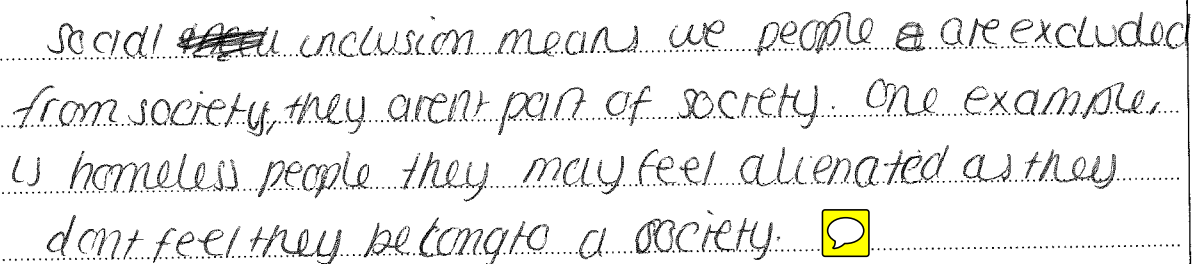 social inclusion means we people are excluded
from society, they arent part of socrety. One example,
is homeless people they may feel alienated as they
dont feel they belong to a society.